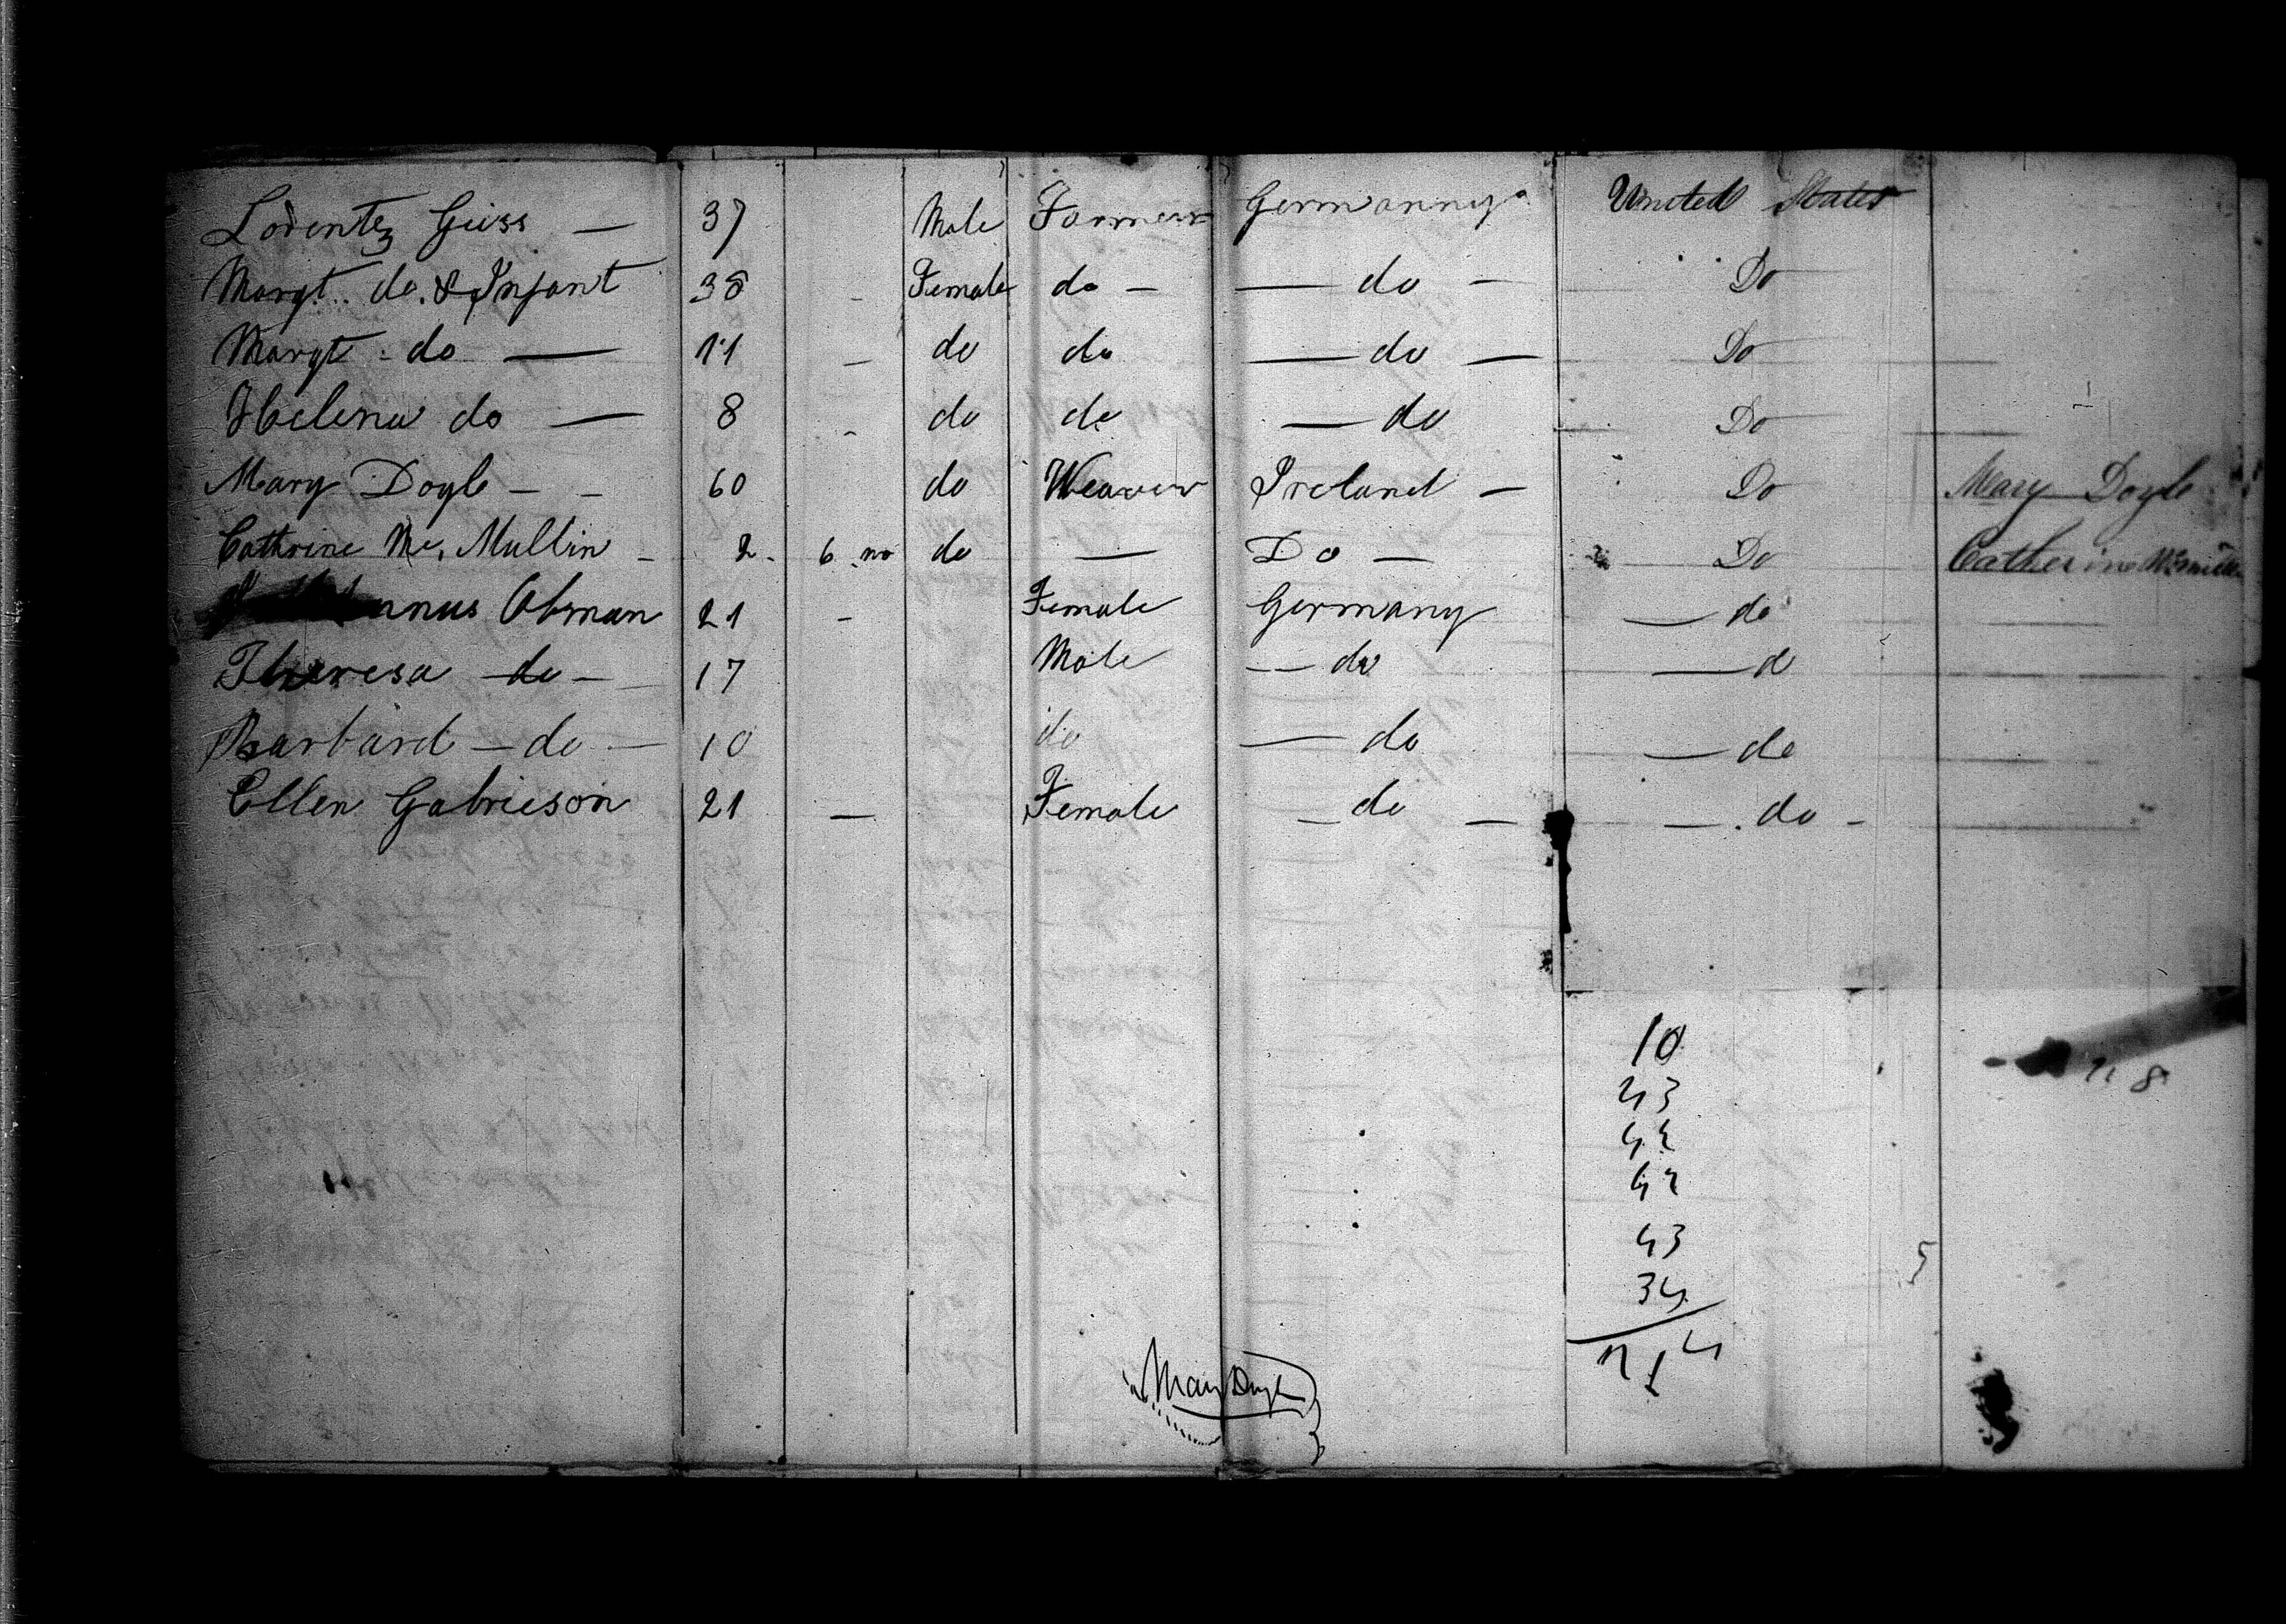 Lodentez Geiss — 37 Male Farmer Germanny United States
Margt. do. & Infant 38 - Female do — — do — Do
Margt - do — 11 - do do — do — Do
Helena do — 8 - do do — do Do
Mary Doyle - - 60 do Weaver Ireland — Do Mary Doyle
Cathrine Mc, Mullin - 2 - 6 mo do — Do — Do Catherine
Obman 21 - Female Germany — do
Theresa - do - 17 Male — do — d
Barbard - do - 10 do — do — do
Ellen Gabrieson 21 — Female - do — — . do -
10
43
42
42
43
34
Mary Doyle